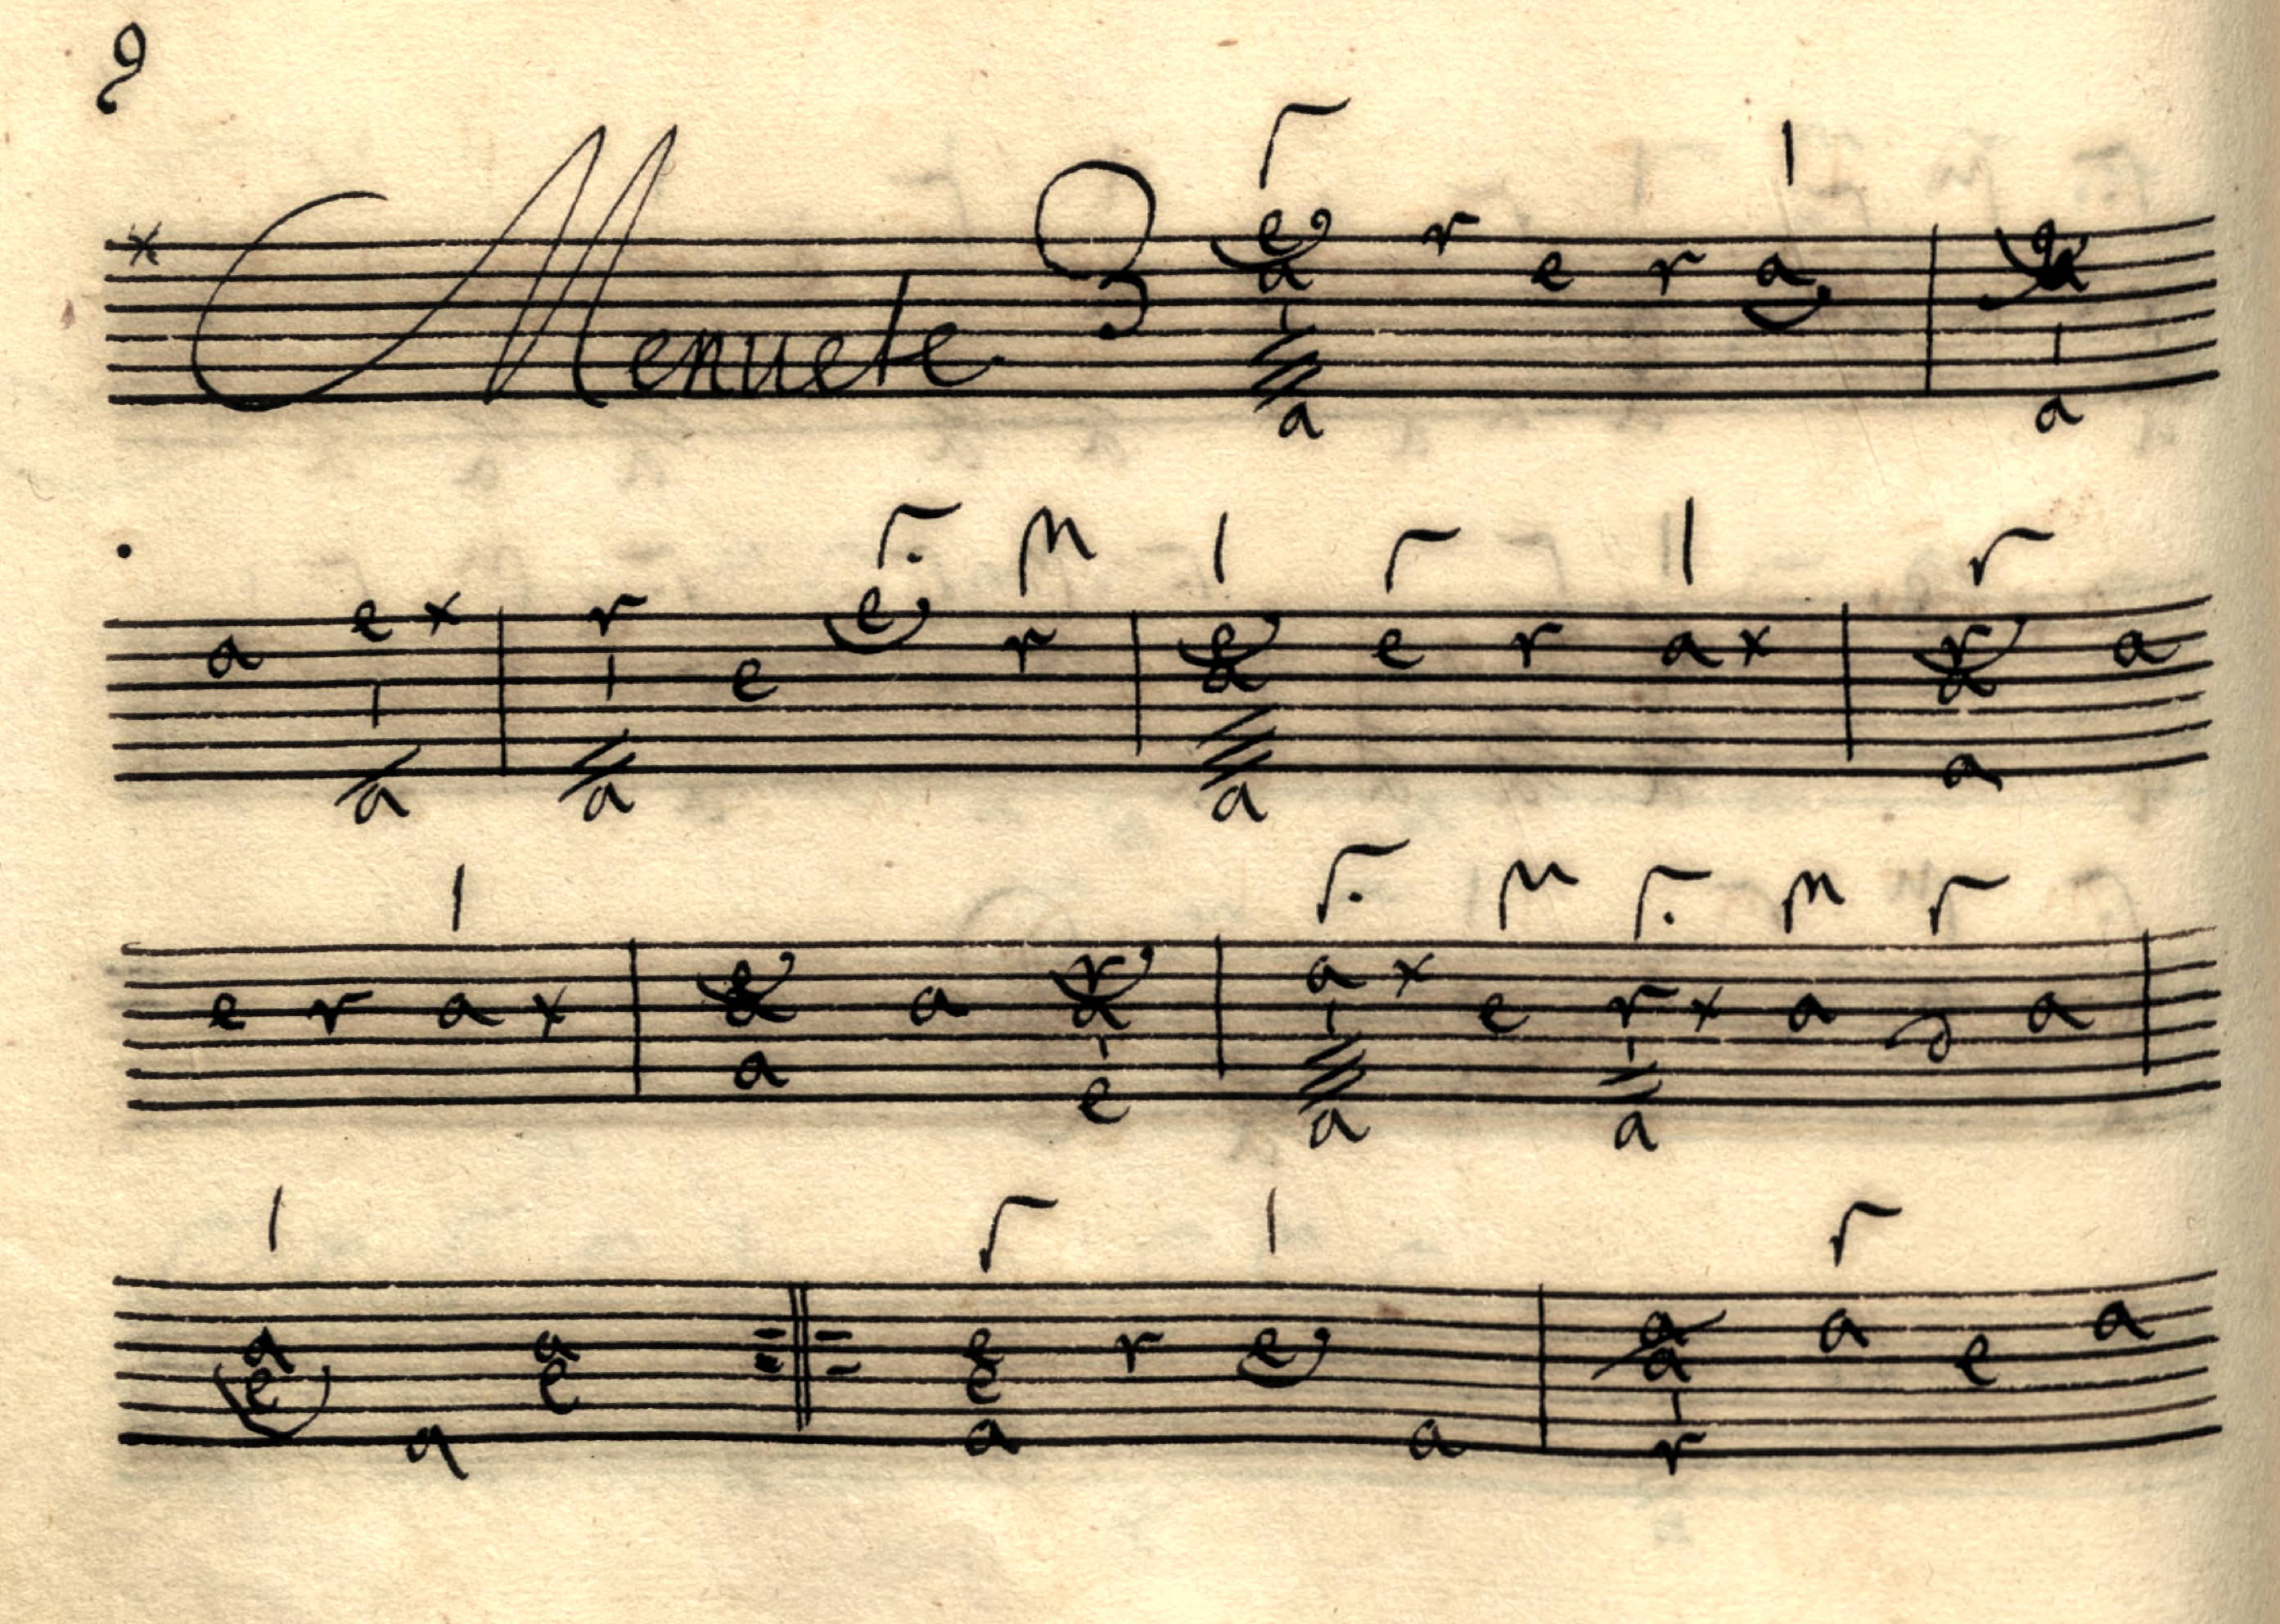 9
x Menuete 3 e a a r e r a e a a
a e x a r a e e r e a a e r a x r a a a
e r a x e a a a r a e a x a e r x a a d a
a e a a e e e a r e a a a r a e a